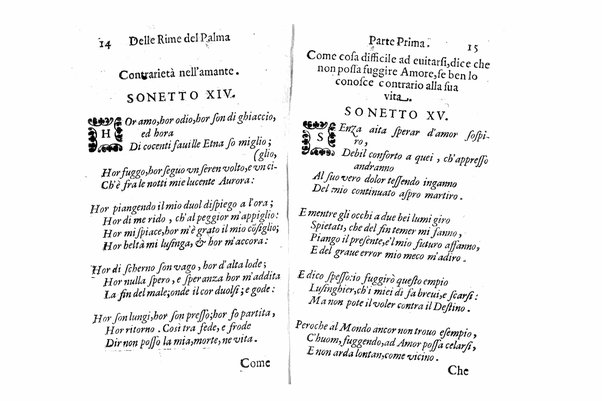 14 Delle Rime del Palma
Contrarietà nell'amante.
SONETTO XIV.
HOr amo, hor odio, hor son di ghiaccio,
ed hora
Di cocenti fauille Etna so miglio;
(glio,
Hor fuggo, hor seguo vn seren volto, e vn ci-
Ch'è fra le notti mie lucente Aurora:
Hor piangendo il mio duol dispiego a l'ora;
Hor di me rido, ch'al peggior m'appiglio:
Hor mi spiace, hor m'è grato il mio cōsiglio;
Hor beltà mi lusinga, & hor m'accora:
Hor di scherno son vago, hor d'alta lode;
Hor nulla spero, e speranza hor m'addita
La fin del male; onde il cor duolsi; e gode:
Hor son lungi, hor son presso; hor fo partita,
Hor ritorno. Cosi tra fede, e frode
Dir non posso la mia, morte, ne vita.
Come
Parte Prima. 15
Come cosa difficile ad euitarsi, dice che
non possa fuggire Amore, se ben lo
conosce contrario alla sua
vita.
SONETTO XV.
SEnza aita sperar d'amor sospi-
ro,
Debil conforto a quei, ch'appresso
andranno
Al suo vero dolor tessendo inganno
Del mio continuato aspro martiro.
E mentre gli occhi a due bei lumi giro
Spietati, che del fin temer mi fanno,
Piango il presente, e'l mio futuro affanno,
E del graue error mio meco m'adiro.
E dico spesso: io fuggirò quest'empio
Lusinghier, ch'i miei dì fa breui, e scarsi:
Ma non pote il voler contra il Destino.
Peroche al Mondo ancor non trouo esempio,
C'huom, fuggendo, ad Amor possa celarsi,
E non arda lontan, come vicino.
Che